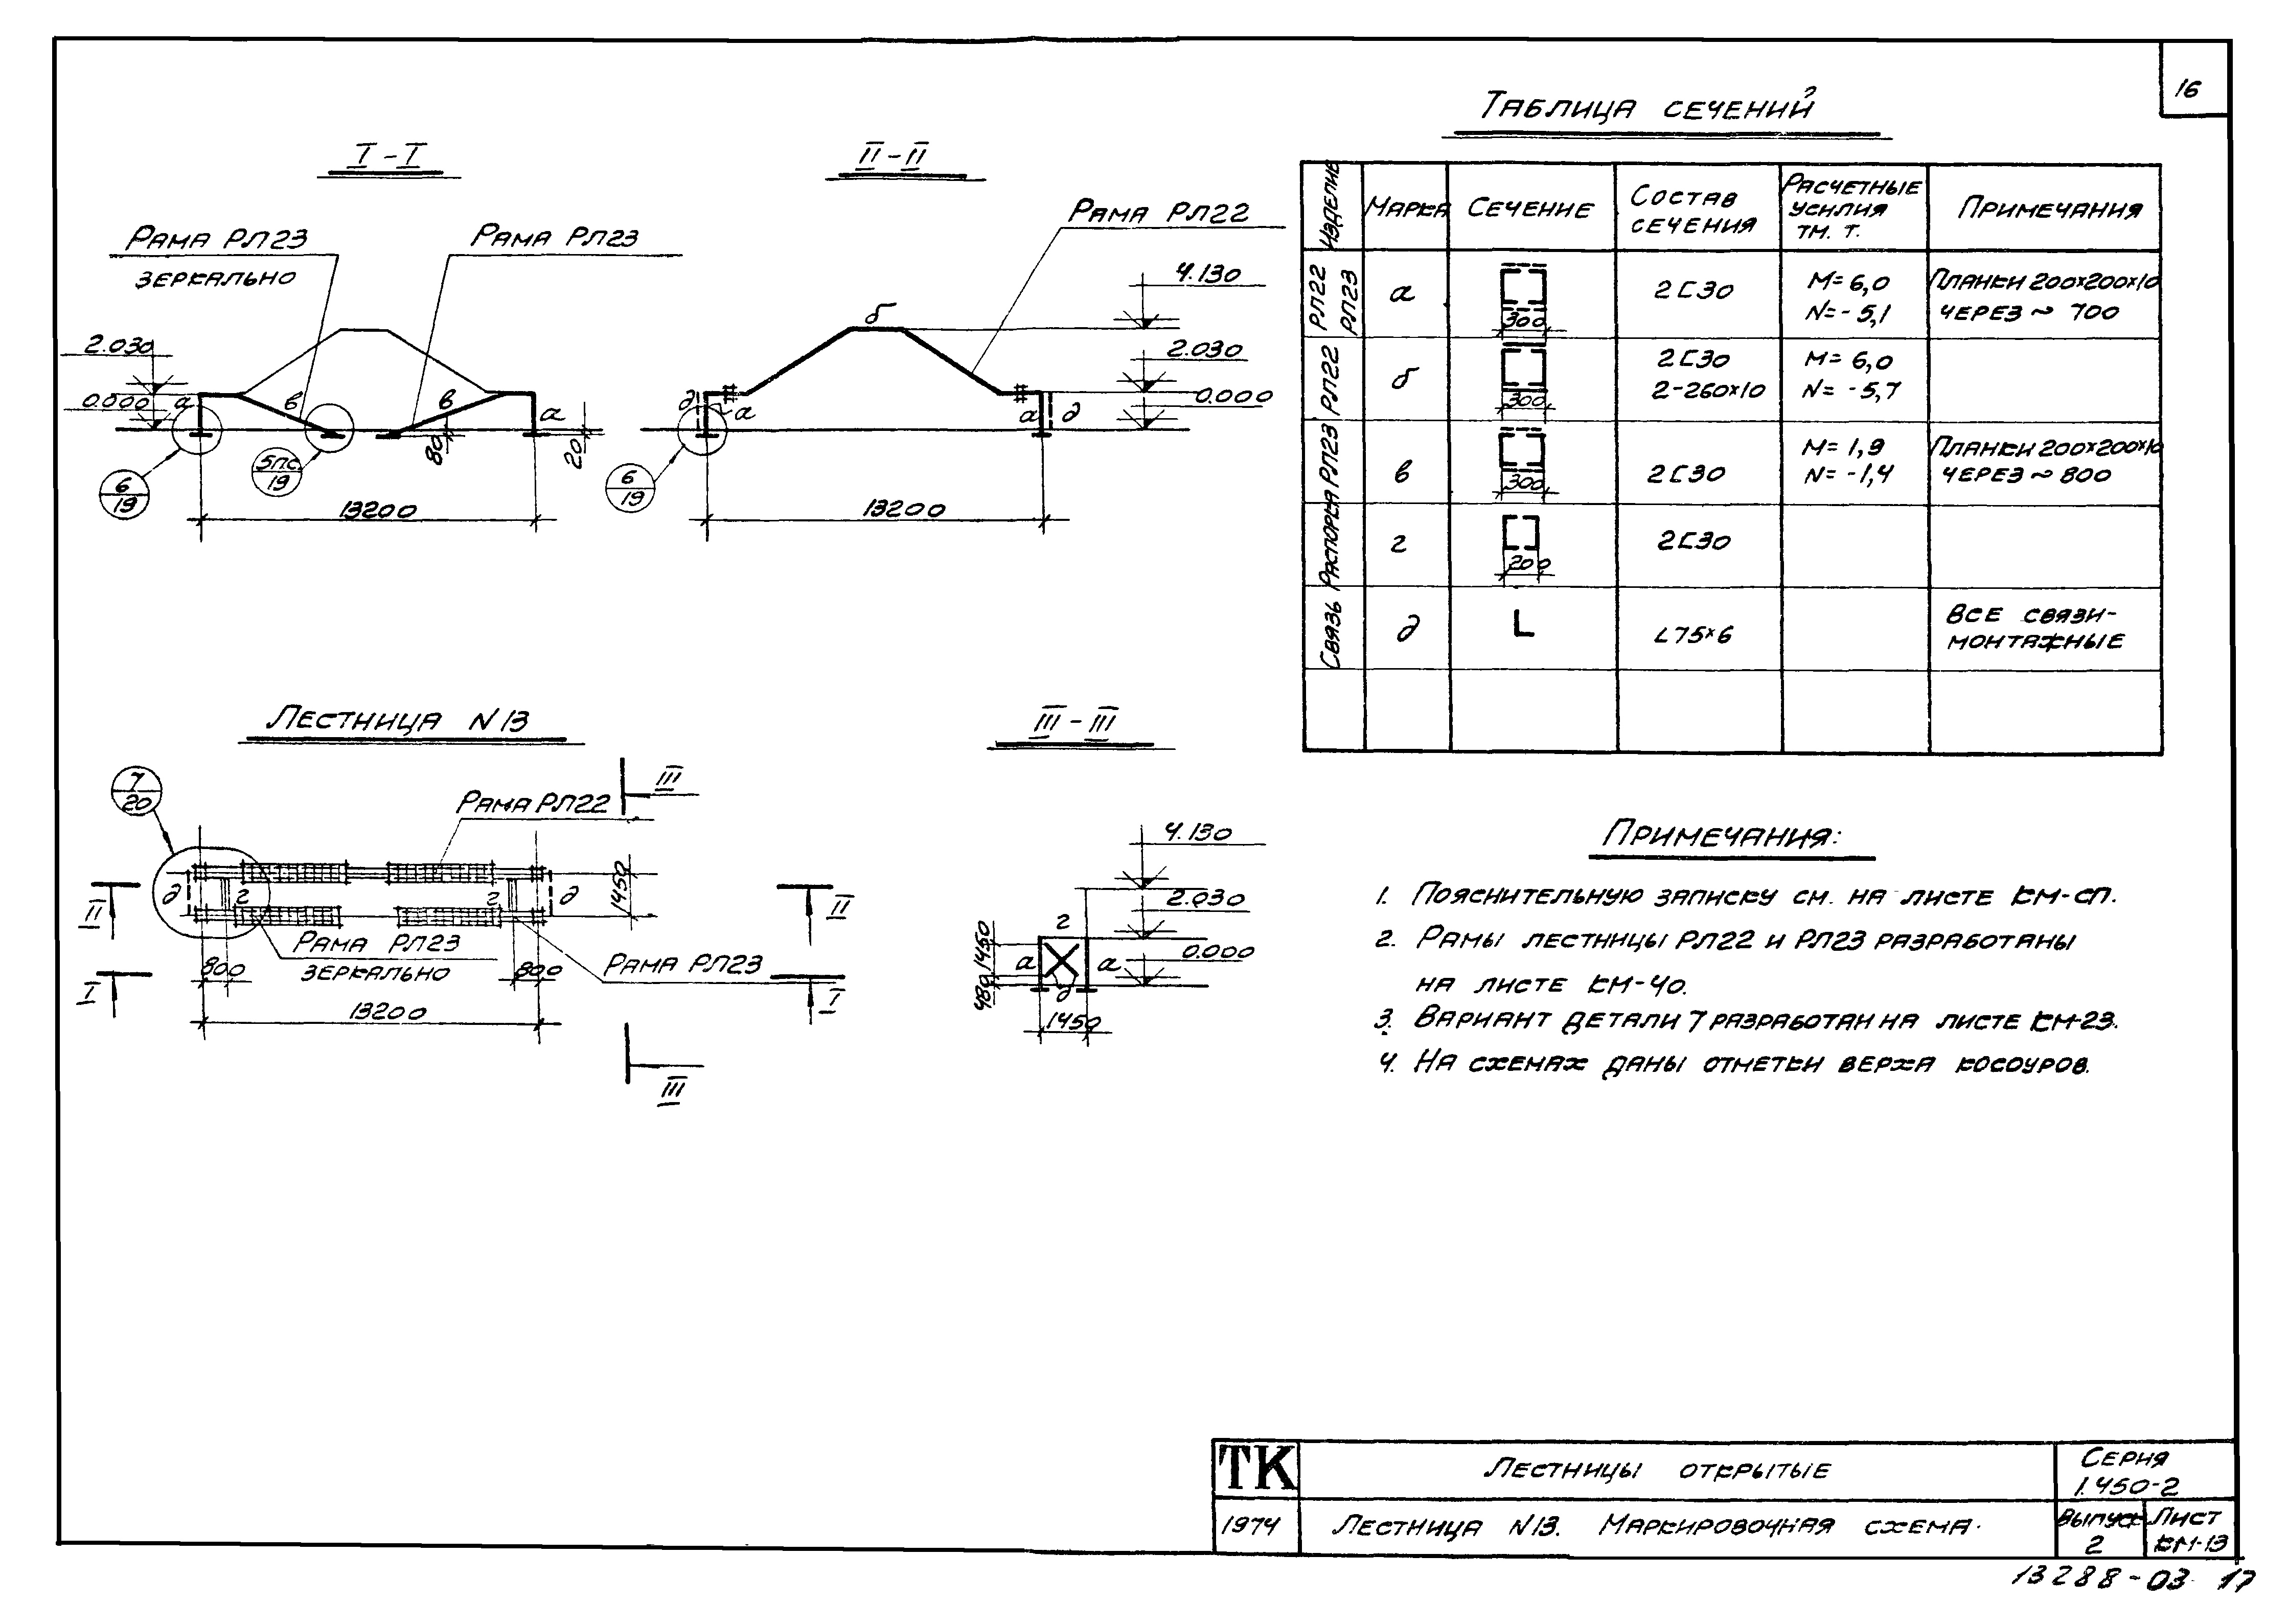 16
I - I
Рама РЛ23
зеркально
Рама РЛ23
2.030
0.000
а
в
в
а
80
20
6
19
5пс
19
13200
II - II
Рама РЛ22
б
4.130
2.030
0.000
д
а
а
д
6
19
13200
Таблица сечений
Изделие
Марка
Сечение
Состав
сечения
Расчетные
усилия
тм. т.
Примечания
РЛ22
РЛ23
а
300
2[30
М= 6,0
N= - 5,1
Планки 200×200×10
через ~ 700
РЛ22
б
300
2[30
2-260×10
М= 6,0
N= -5,7
РЛ23
в
300
2[30
М= 1,9
N= -1,4
Планки 200×200×10
через ~ 800
Распорка
г
200
2[30
Связь
д
L75×6
Все связи-
монтажные
Лестница N 13
7
20
Рама РЛ22
III
1450
д
г
г
д
II
II
Рама РЛ23
зеркально
Рама РЛ23
800
800
I
I
13200
III
III - III
4.130
2.030
0.000
г
а
а
д
1450
480
1450
Примечания:
1. Пояснительную записку см. на листе КМ-СП.
2. Рамы лестницы РЛ22 и РЛ23 разработаны
на листе КМ-40.
3. Вариант детали 7 разработан на листе КМ-23.
4. На схемах даны отметки верха косоуров.
ТК
Лестницы открытые
Серия
1.450-2
1974
Лестница N13. Маркировочная схема.
Выпуск
2
Лист
КМ-13
13288-03 17